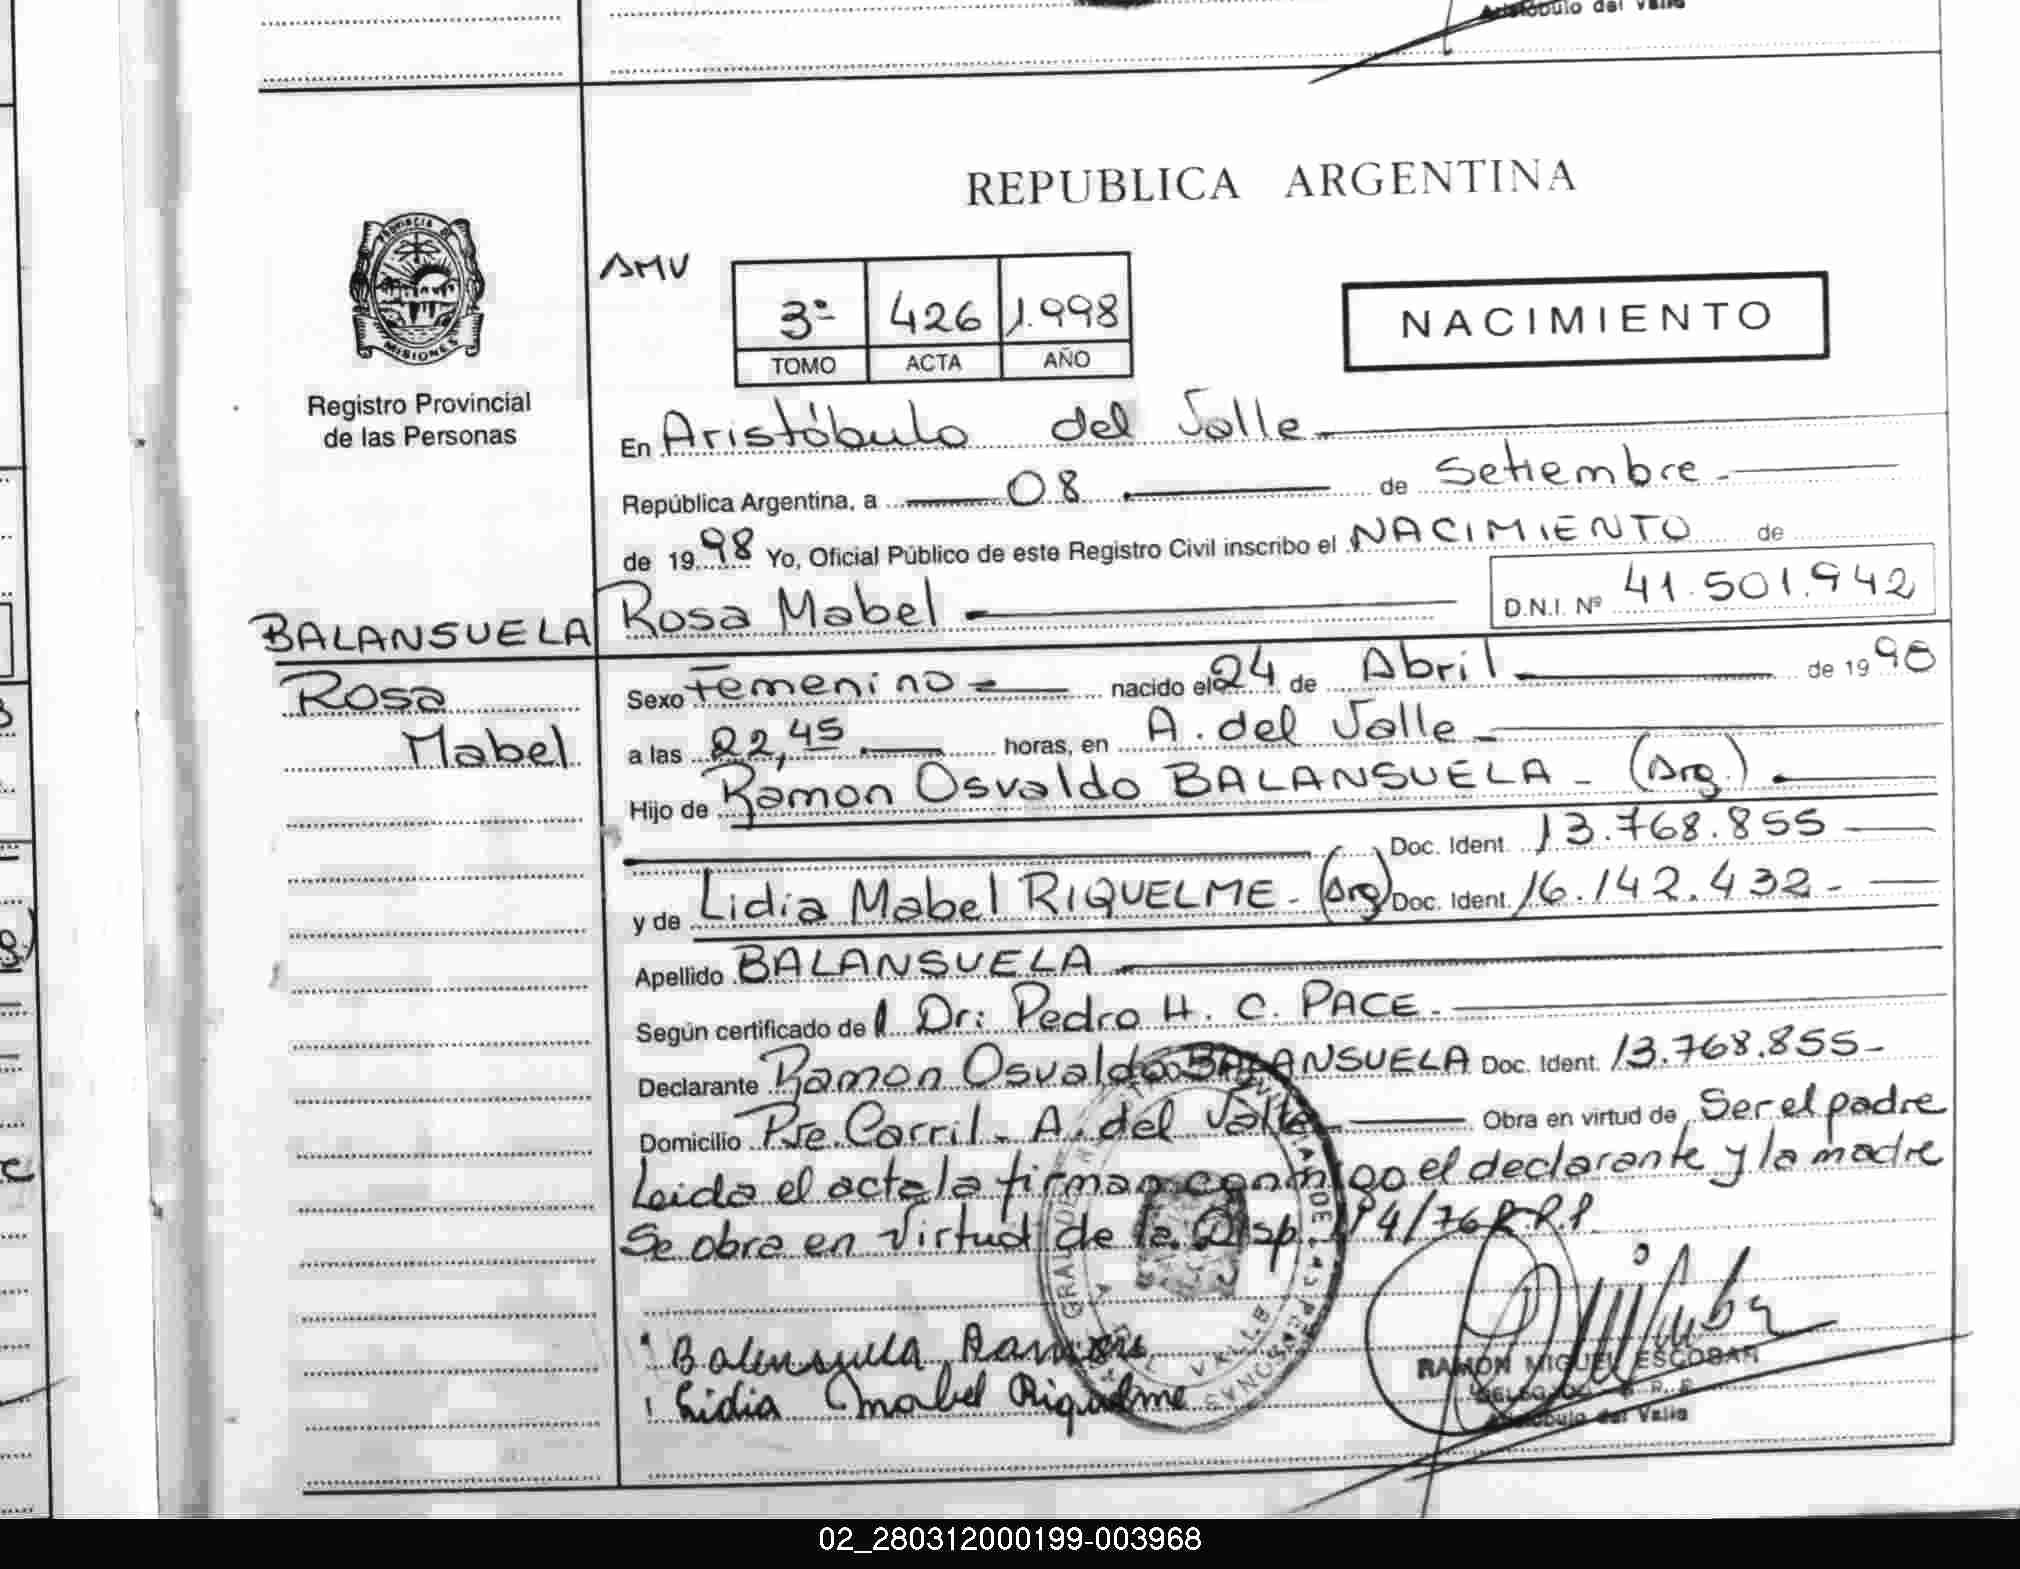 Aristóbulo del Valle
REPUBLICA ARGENTINA
PROVINCIA DE
MISIONES
Registro Provincial
de las Personas
AMV
3º 426 1.998
TOMO ACTA AÑO
NACIMIENTO
En Aristóbulo del Valle
República Argentina, a 08 de Setiembre
de 1998 Yo, Oficial Público de este Registro Civil inscribo el NACIMIENTO de
Rosa Mabel D.N.I. Nº 41.501.942
BALANSUELA
Rosa
Mabel
Sexo Femenino nacido el 24 de Abril de 1998
a las 22,45 horas, en A. del Valle
Hijo de Ramon Osvaldo BALANSUELA - (Arg.)
Doc. Ident. 13.768.855
y de Lidia Mabel RIQUELME - (Arg) Doc. Ident. 16.142.432-
Apellido BALANSUELA
Según certificado del Dr: Pedro H. C. PACE.
Declarante Ramon Osvaldo BALANSUELA Doc. Ident. 13.768.855-
Domicilio Pje. Carril - A. del Valle Obra en virtud de Ser el padre
Leida el acta la firman conmigo el declarante y la madre
Se obra en virtud de la Disp. 4/76 R.P.P.
Balensuela Ramon
Lidia Mabel Riquelme
RAMON MIGUEL ESCOBAR
Aristóbulo del Valle
02_280312000199-003968